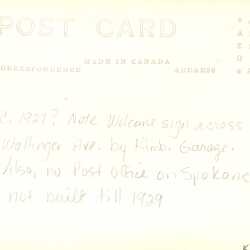 POST CARD
MADE IN CANADA
CORRESPONDENCE ADDRESS
1927? Note Welcome sign across
Wallinger Ave. by Kimb. Garage.
Also, no Post Office on Spokane
not built till 1929